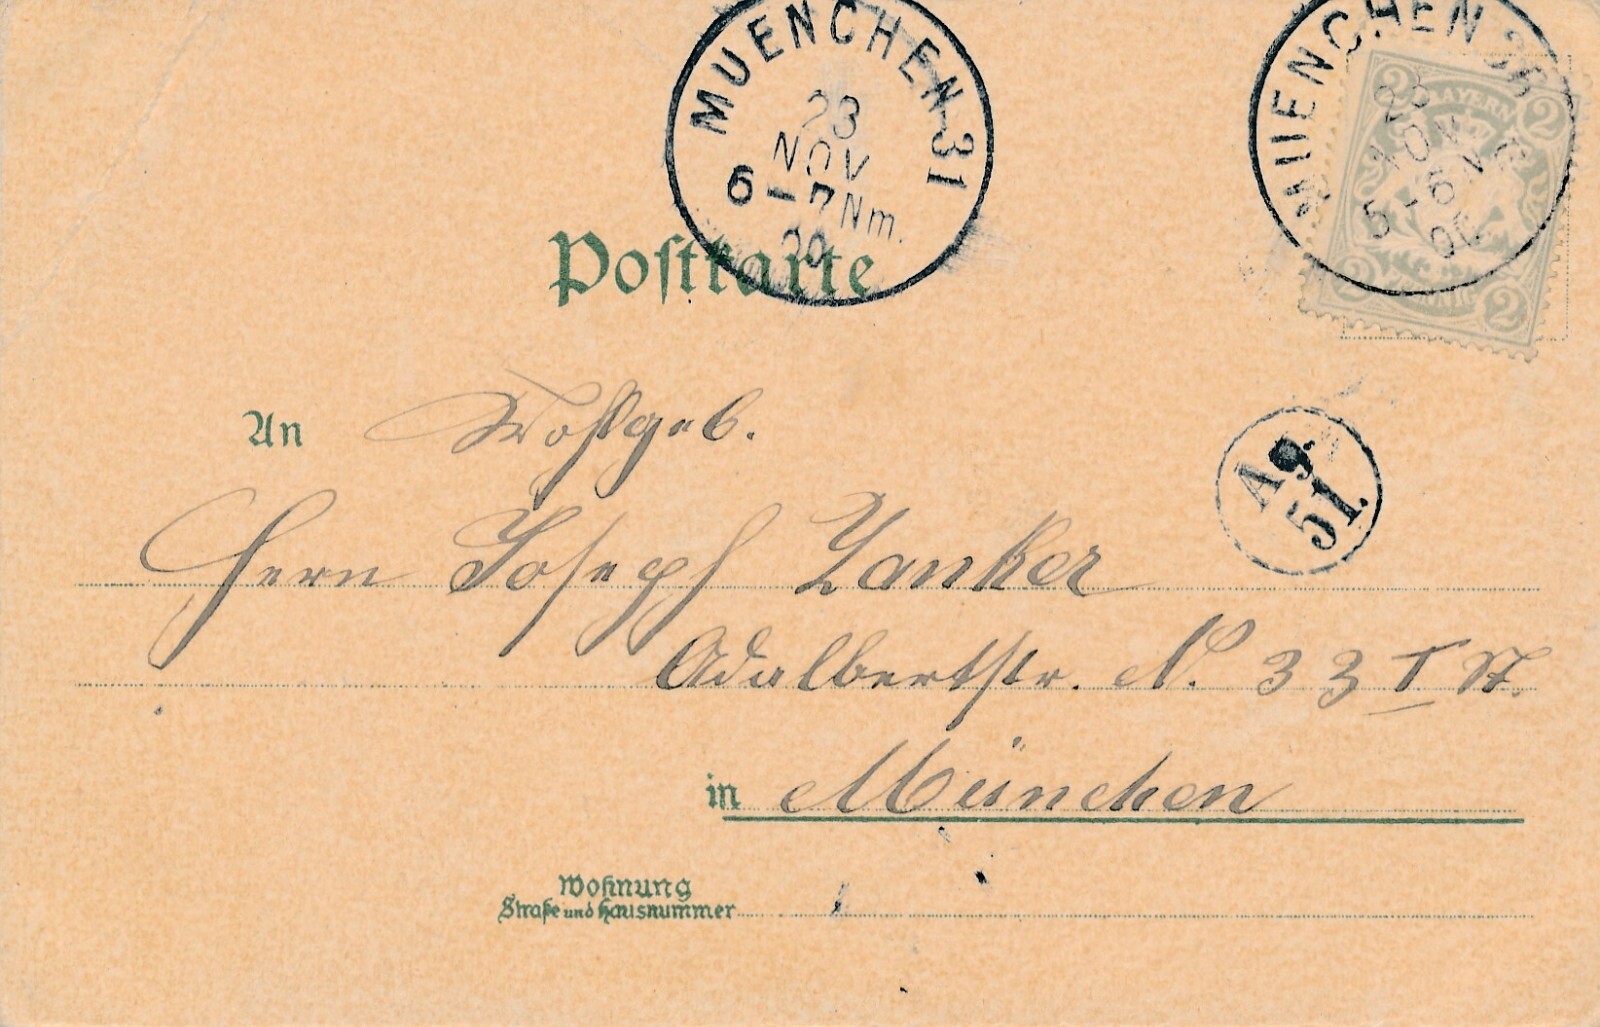 MUENCHEN 31
23
NOV
6-7 Nm.
00
MUENCHEN
23
NOV
5-6 N
00
BAYERN
2 2
2 2
Postkarte
An Wohlgeb.
Ag.
51.
Herrn Joseph Zanker
Adalbertstr. N. 33 I St.
in München
Wohnung
Straße und Hausnummer